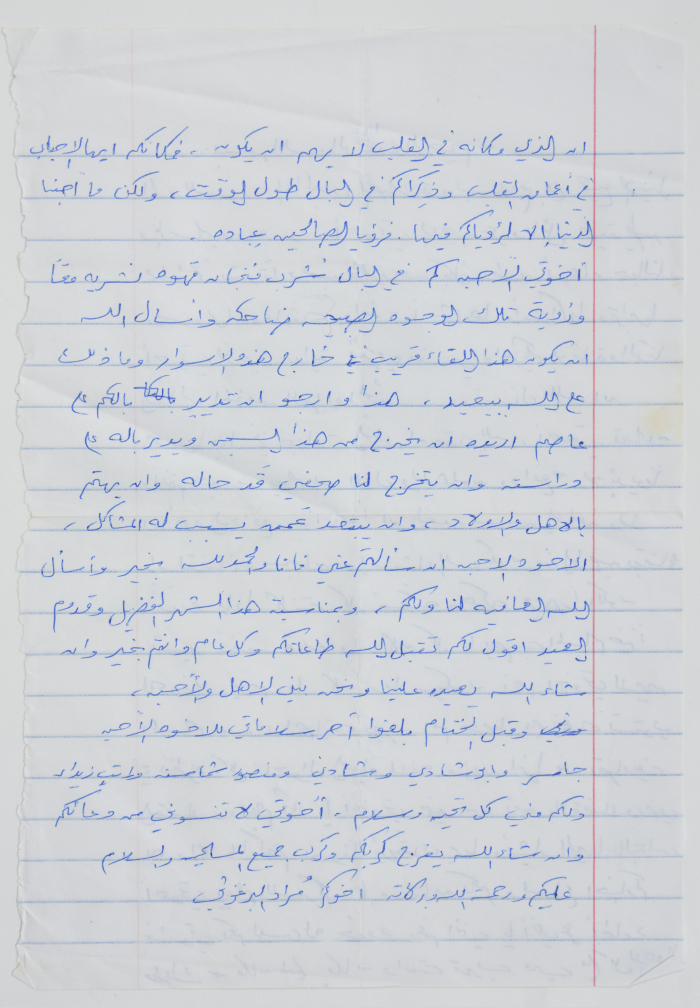 ان الذي مكانه في القلب لا يهم اين يكون، فمكانكم ايها الاحباب
في أعماق القلب وذكراكم في البال طول الوقت، ولكن ما احببنا
الدنيا إلا لرؤياكم فيها. فرؤيا الصالحين عباده.
أخوتي الأحبه كم في البال نشرب فنجان قهوه نشربه معاً
ورؤية تلك الوجوه الصبيحه ضاحكه وأسال الله
ان يكون هذا اللقاء قريب في خارج هذه الاسوار وما ذلك
على الله ببعيد، هذا وارجو ان تديرو بالكم على
عاصم اريده ان يخرج من هذا السجن ويدير باله على
دراسته وان يتخرج لنا صحفي قد حاله وان يهتم
بالاهل والاولاد، وان يبتعد عمن يسبب له المشاكل،
الاخوه الاحبه ان سألتم عني فانا والحمد لله بخير وأسأل
الله العافيه لنا ولكم، وبمناسبة هذا الشهر الفضيل وقدوم
العيد اقول لكم تقبل الله طاعاتكم وكل عام وانتم بخير وان
شاء الله يعيده علينا ونحن بين الاهل والأحبه.
وقبل الختام بلغوا أحر سلاماتي للاخوه الأحبه
جاسر وابو شادي وشادي ومنصور شماسنه وراتب زيدان
ولكم مني كل تحيه وسلام. أخوتي لا تنسوني من دعائكم
وان شاء الله يفرج كربكم وكرب جميع المسلمين والسلام
عليكم ورحمة الله وبركاته اخوكم مُراد البرغوثي